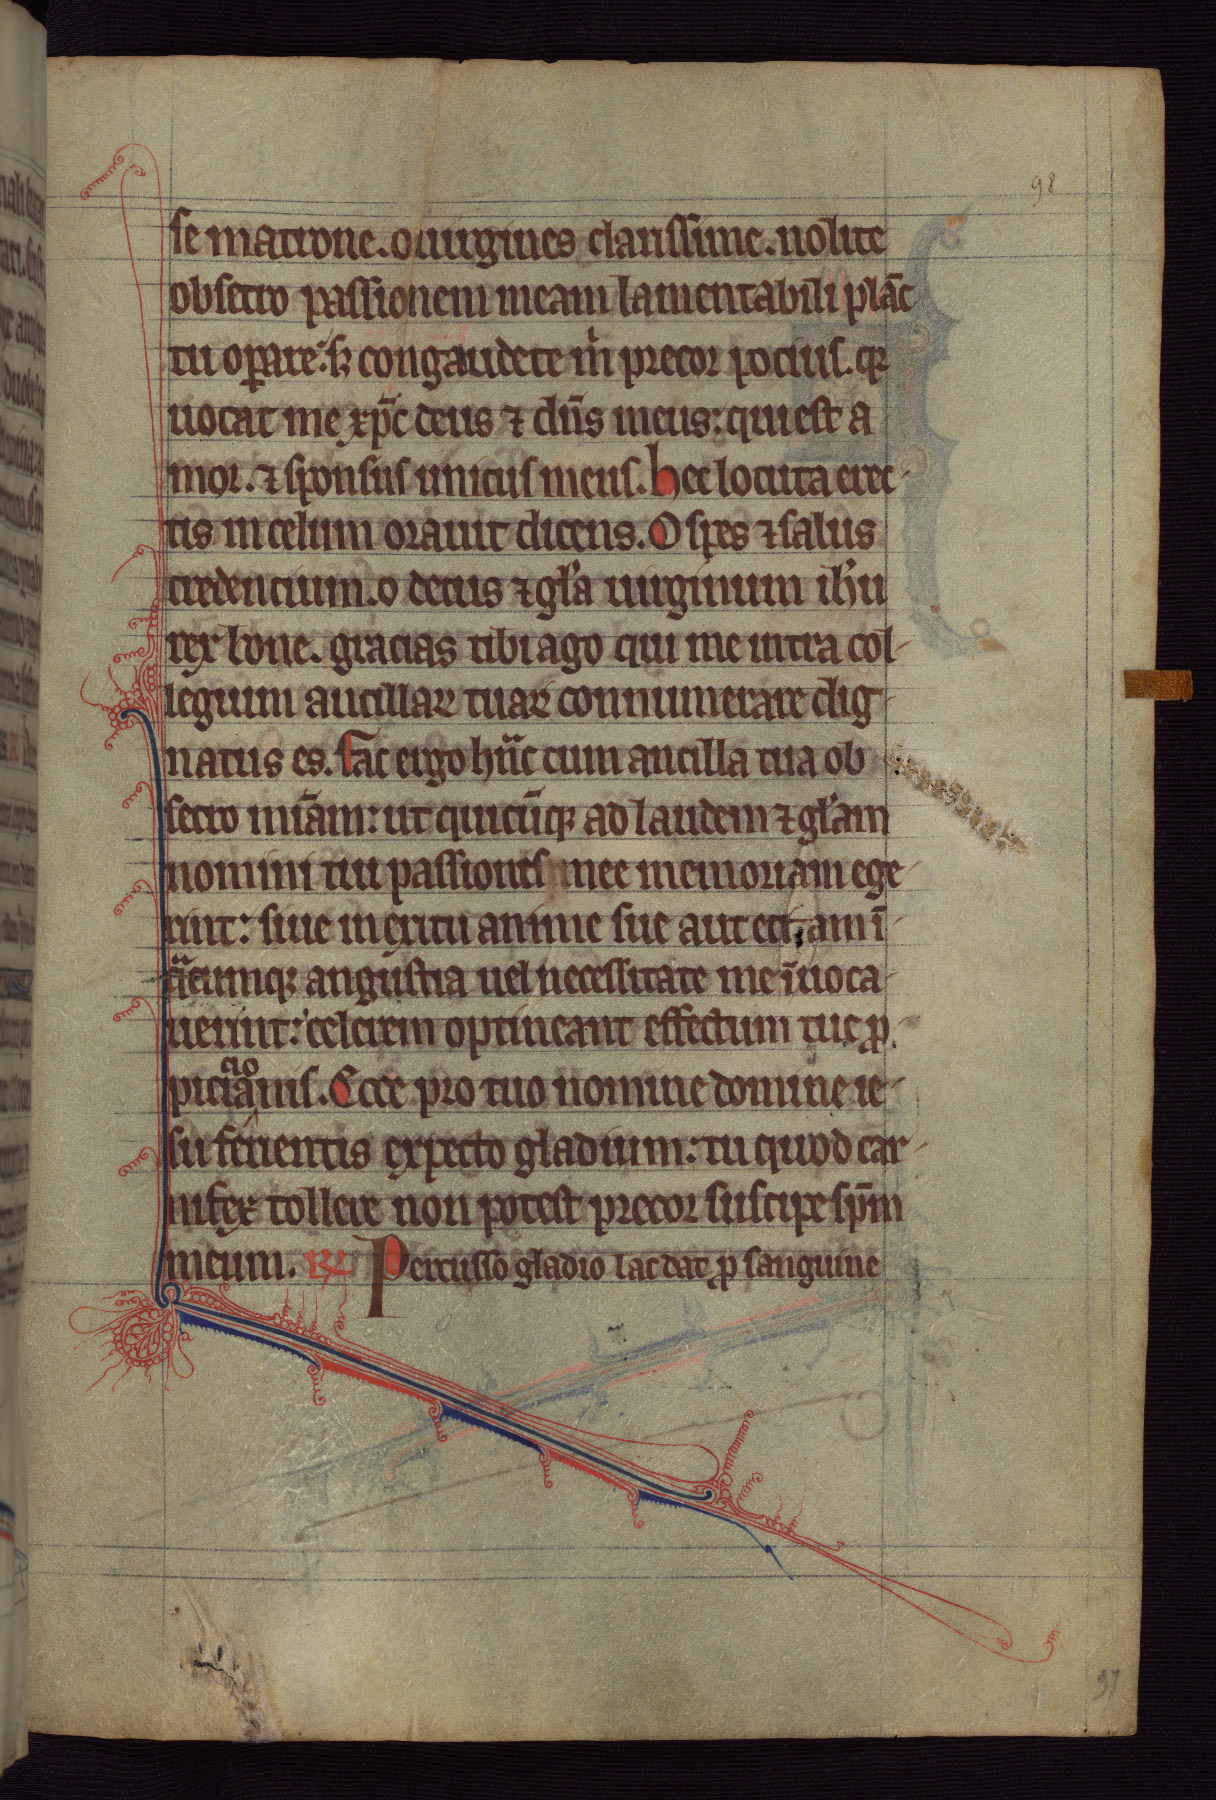 98
se matrone. o uirgines clarissime. nolite
obsecro passionem meam lamentabili planc̄
tu oꝑare: sꝫ congaudete m̅i precor pocius. qꝛ
uocat me xp̄c deus ⁊ dn̄s meus: qui est a
mor. ⁊ sponsus unicus meus. Hec locuta erec-
tis in celum orauit dicens. O spes ⁊ salus
credencium. o decus ⁊ gl̄a uirginum ih̄u
rex bone. gracias tibi ago qui me intra col-
legium ancillaꝝ tuaꝝ connumerare dig-
natus es. Fac ergo hūc cum ancilla tua ob
secro mīam: ut quicūqꝫ ad laudem ⁊ gl̄am
nominis tui passionis mee memoriam ege-
rint: siue in exitu anime sue aut eciam ī-
qͣcumqꝫ angustia uel necessitate me īuoca-
uerint: celerem optineant effectum tue ꝓ-
piciacionis. Ecce pro tuo nomine domine ie-
su ferientis expecto gladium: tu quod car-
nifex tollere non potest precor suscipe sp̄m
meum. ℟ Percusso gladio lac dat ꝓ sanguine
97